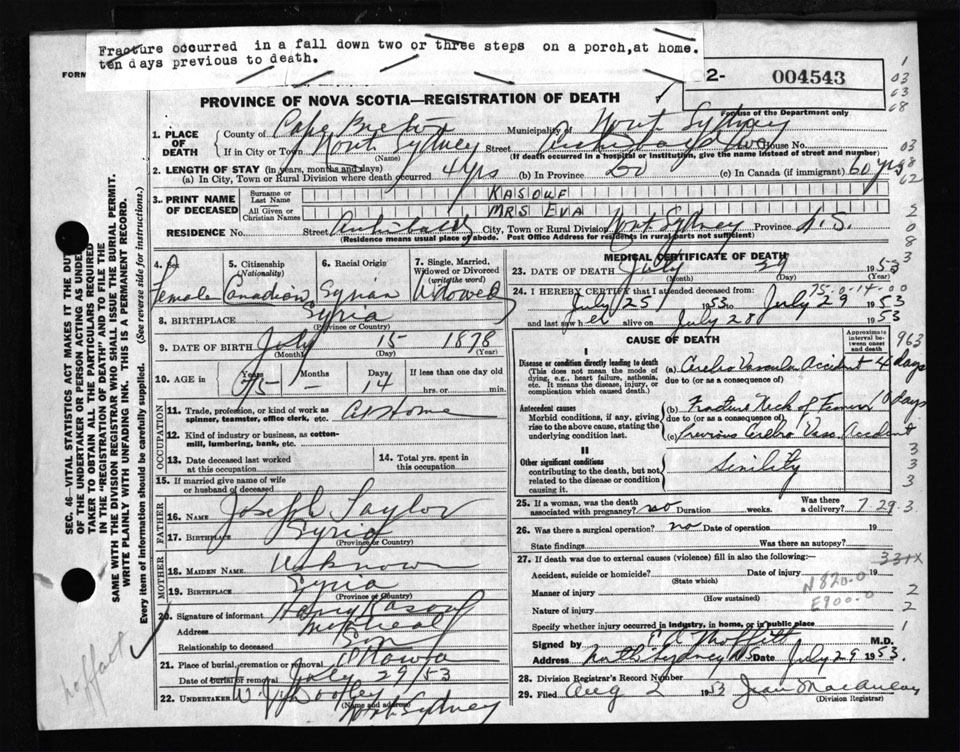 Fracture occurred in a fall down two or three steps on a porch, at home.
ten days previous to death.
FORM
2- 004543
For use of the Department only
PROVINCE OF NOVA SCOTIA—REGISTRATION OF DEATH
1. PLACE OF DEATH
County of Cape Breton Municipality of North Sydney
If in City or Town North Sydney Street House No.
(Name) (If death occurred in a hospital or institution, give the name instead of street and number)
2. LENGTH OF STAY (in years, months and days)
(a) In City, Town or Rural Division where death occurred 4 yrs (b) In Province 50 (c) In Canada (if immigrant) 60 yrs
3. PRINT NAME OF DECEASED
Surname or Last Name KASOUF
All Given or Christian Names MRS EVA
RESIDENCE No. Street City, Town or Rural Division North Sydney Province N.S.
(Residence means usual place of abode. Post Office Address for residents in rural parts not sufficient)
4. Sex Female
5. Citizenship (Nationality) Canadian
6. Racial Origin Syrian
7. Single, Married, Widowed or Divorced (write the word) Widowed
8. BIRTHPLACE Syria
(Province or Country)
9. DATE OF BIRTH July 15 1878
(Month) (Day) (Year)
10. AGE in Years 75 Months – Days 4 If less than one day old
hrs. or min.
OCCUPATION
11. Trade, profession, or kind of work as spinner, teamster, office clerk, etc. At Home
12. Kind of industry or business, as cotton-mill, lumbering, bank, etc.
13. Date deceased last worked at this occupation
14. Total yrs. spent in this occupation
15. If married give name of wife or husband of deceased
FATHER
16. NAME Joseph Taylor
17. BIRTHPLACE Syria
(Province or Country)
MOTHER
18. MAIDEN NAME Unknown
19. BIRTHPLACE Syria
(Province or Country)
20. Signature of informant Henry Kasouf
Address Montreal
Relationship to deceased Son
21. Place of burial, cremation or removal Ottawa
Date of burial or removal July 29/53
22. UNDERTAKER W. J. Dooley
(Name and address)
North Sydney
MEDICAL CERTIFICATE OF DEATH
23. DATE OF DEATH July 1953
(Month) (Day)
24. I HEREBY CERTIFY that I attended deceased from: 75-0-14-00
July 25 1953 to July 29 1953
and last saw her alive on July 28 1953
CAUSE OF DEATH
Approximate interval between onset and death
963
I
Disease or condition directly leading to death
(This does not mean the mode of dying, e.g., heart failure, asthenia, etc. It means the disease, injury, or complication which caused death.)
(a) Cerebro Vascular Accident 4 days
due to (or as a consequence of)
Antecedent causes
Morbid conditions, if any, giving rise to the above cause, stating the underlying condition last.
(b) Fracture Neck of Femur 10 days
due to (or as a consequence of)
(c) Previous Cerebro Vas. Accident
II
Other significant conditions contributing to the death, but not related to the disease or condition causing it.
Sinility
25. If a woman, was the death associated with pregnancy? no Duration weeks. Was there a delivery? 7.29.3.
26. Was there a surgical operation? no Date of operation 19
State findings Was there an autopsy?
27. If death was due to external causes (violence) fill in also the following:— 33+X
Accident, suicide or homicide? Date of injury 19
(State which)
Manner of injury N820-0
(How sustained)
Nature of injury E900-0
Specify whether injury occurred in industry, in home, or in public place
Signed by E. A. Moffitt M.D.
Address North Sydney NS Date July 29 1953.
28. Division Registrar's Record Number
29. Filed Aug 2 1953 Jean MacAulay
(Division Registrar)
SEC. 46 - VITAL STATISTICS ACT MAKES IT THE DUTY
OF THE UNDERTAKER OR PERSON ACTING AS UNDER-
TAKER TO OBTAIN ALL THE PARTICULARS REQUIRED
IN THE "REGISTRATION OF DEATH" AND TO FILE THE
SAME WITH THE DIVISION REGISTRAR WHO SHALL ISSUE THE BURIAL PERMIT.
WRITE PLAINLY WITH UNFADING INK. THIS IS A PERMANENT RECORD.
Every item of information should be carefully supplied. (See reverse side for instructions.)
1
03
63
68
03
8
62
2
0
8
3
3
3
3
2
2
1